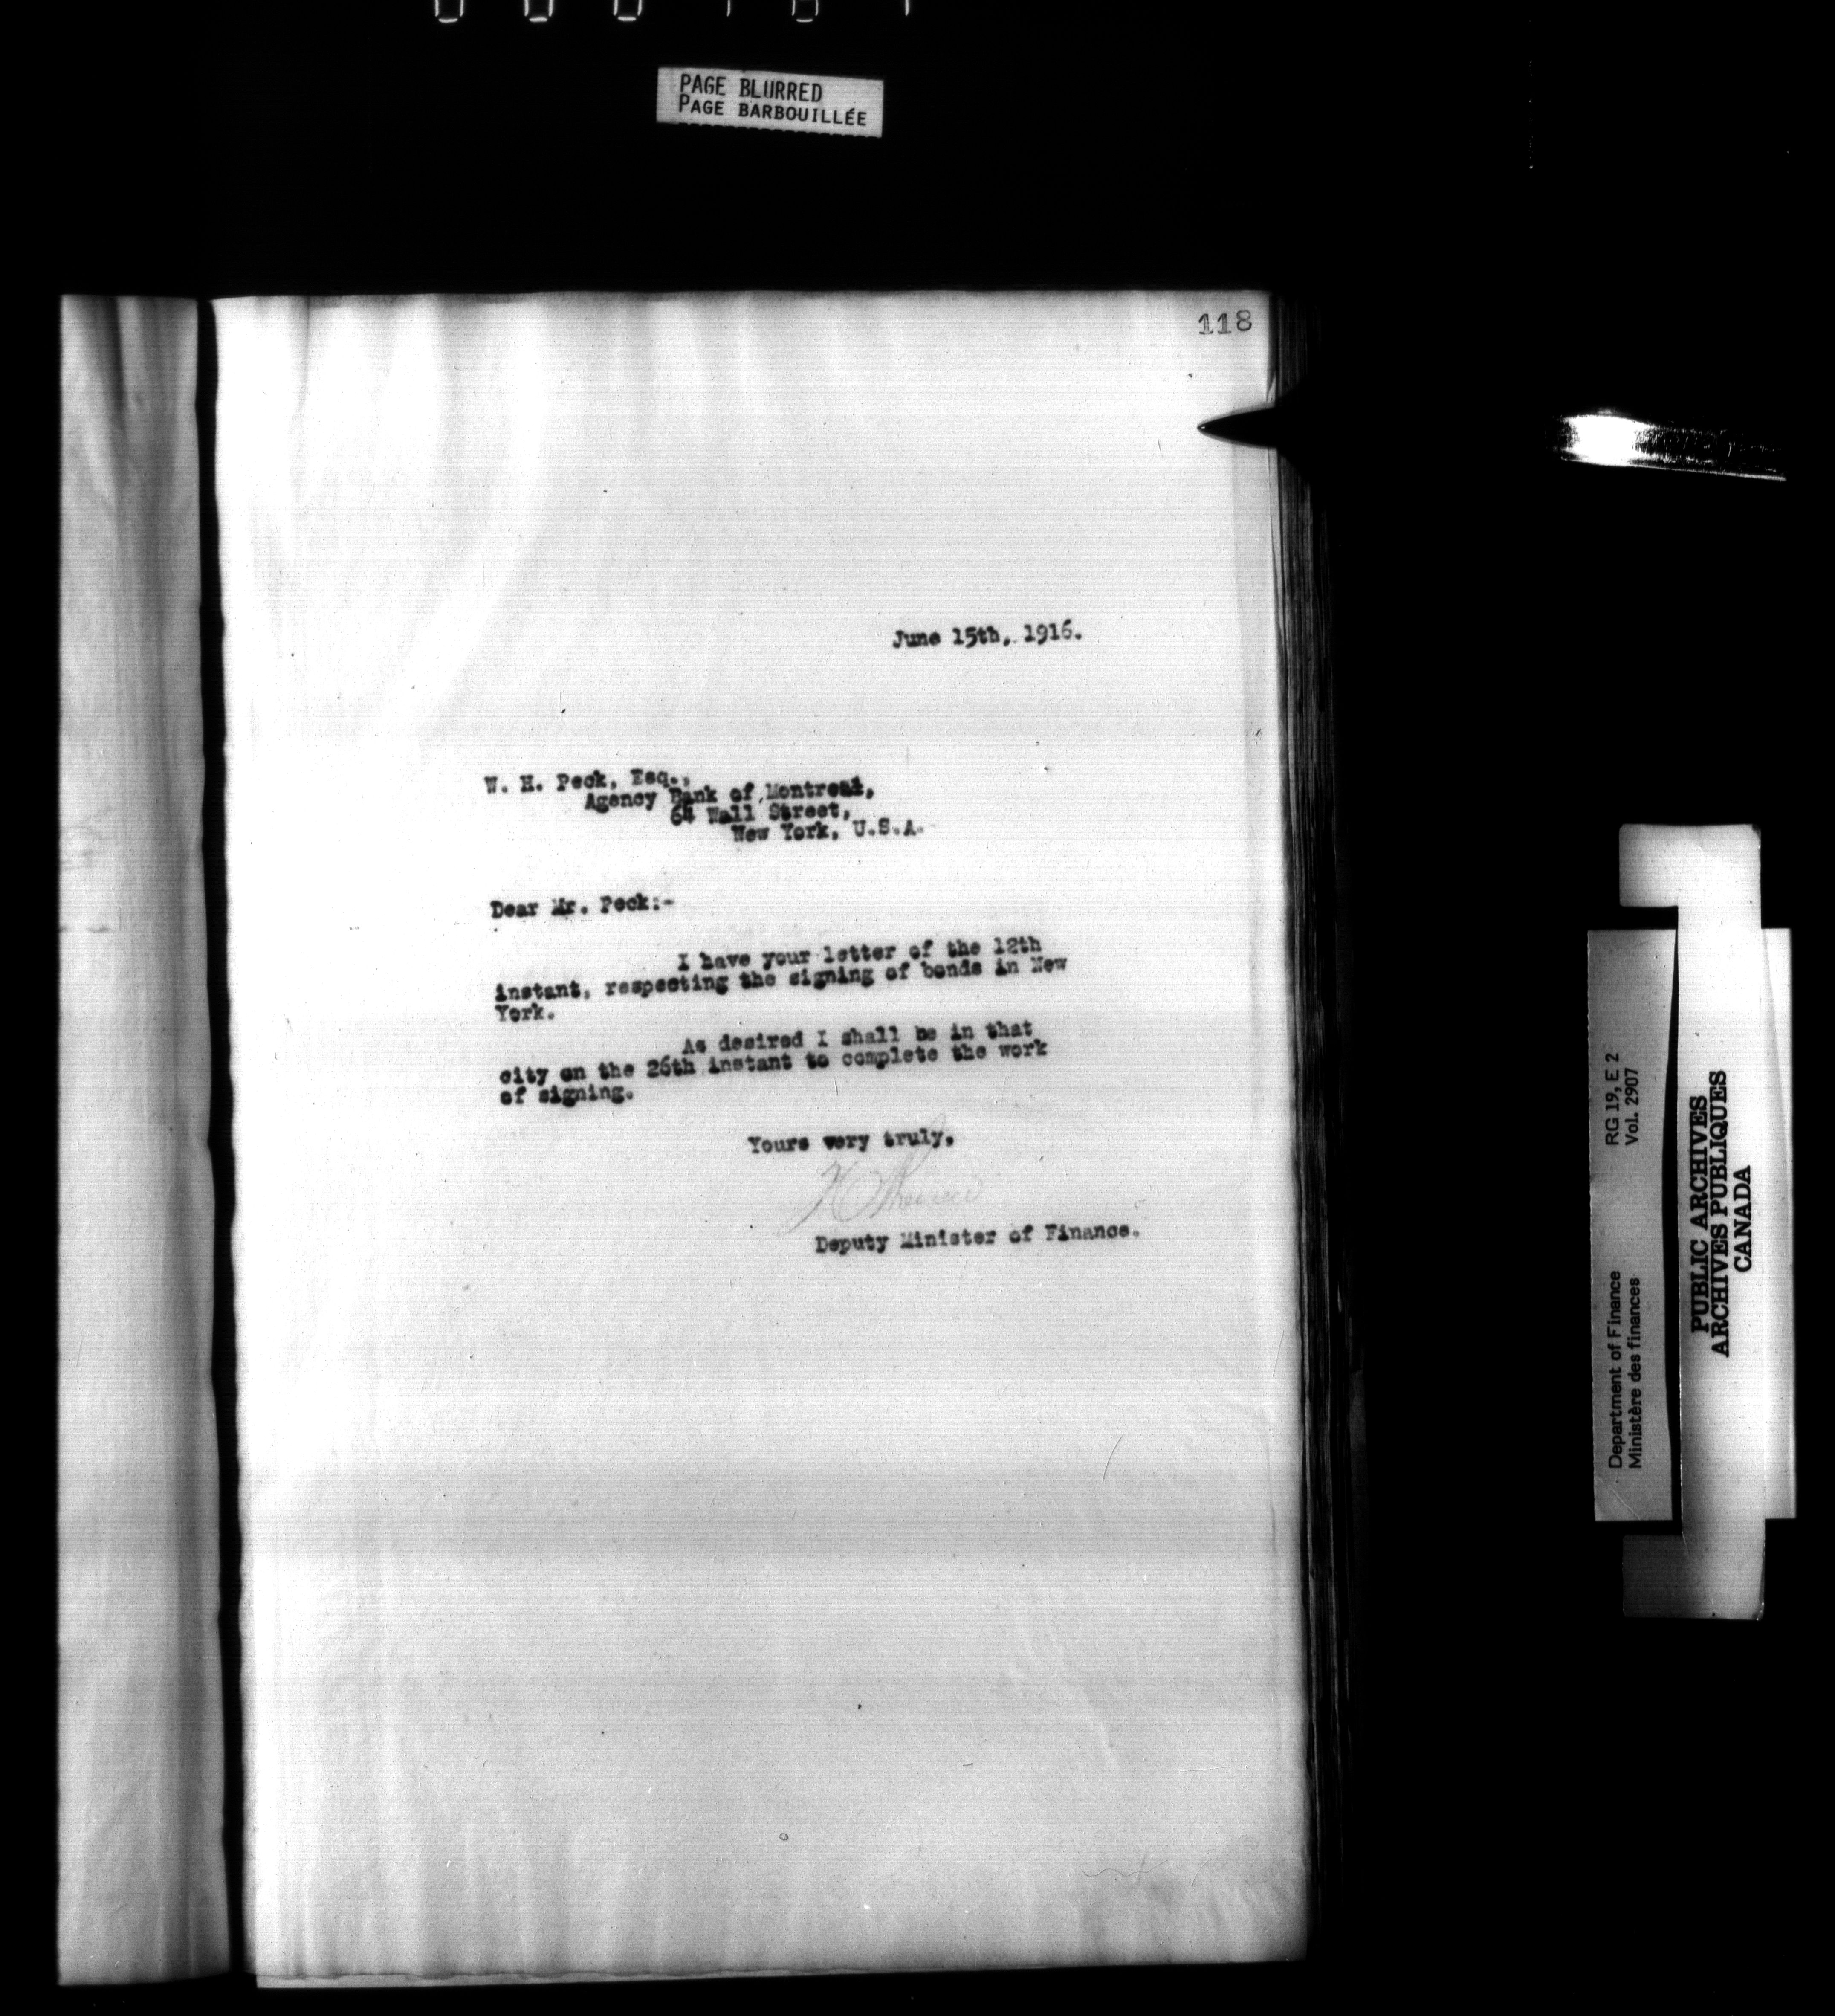 PAGE BLURRED
PAGE BARBOUILLÉE
118
June 15th, 1916.
W. H. Peck, Esq.,
Agency Bank of Montreal,
64 Wall Street,
New York, U.S.A.
Dear Mr. Peck:-
I have your letter of the 12th
instant, respecting the signing of bonds in New
York.
As desired I shall be in that
city on the 26th instant to complete the work
of signing.
Yours very truly,
Deputy Minister of Finance.
Department of Finance RG 19, E 2
Ministère des finances Vol. 2907
PUBLIC ARCHIVES
ARCHIVES PUBLIQUES
CANADA